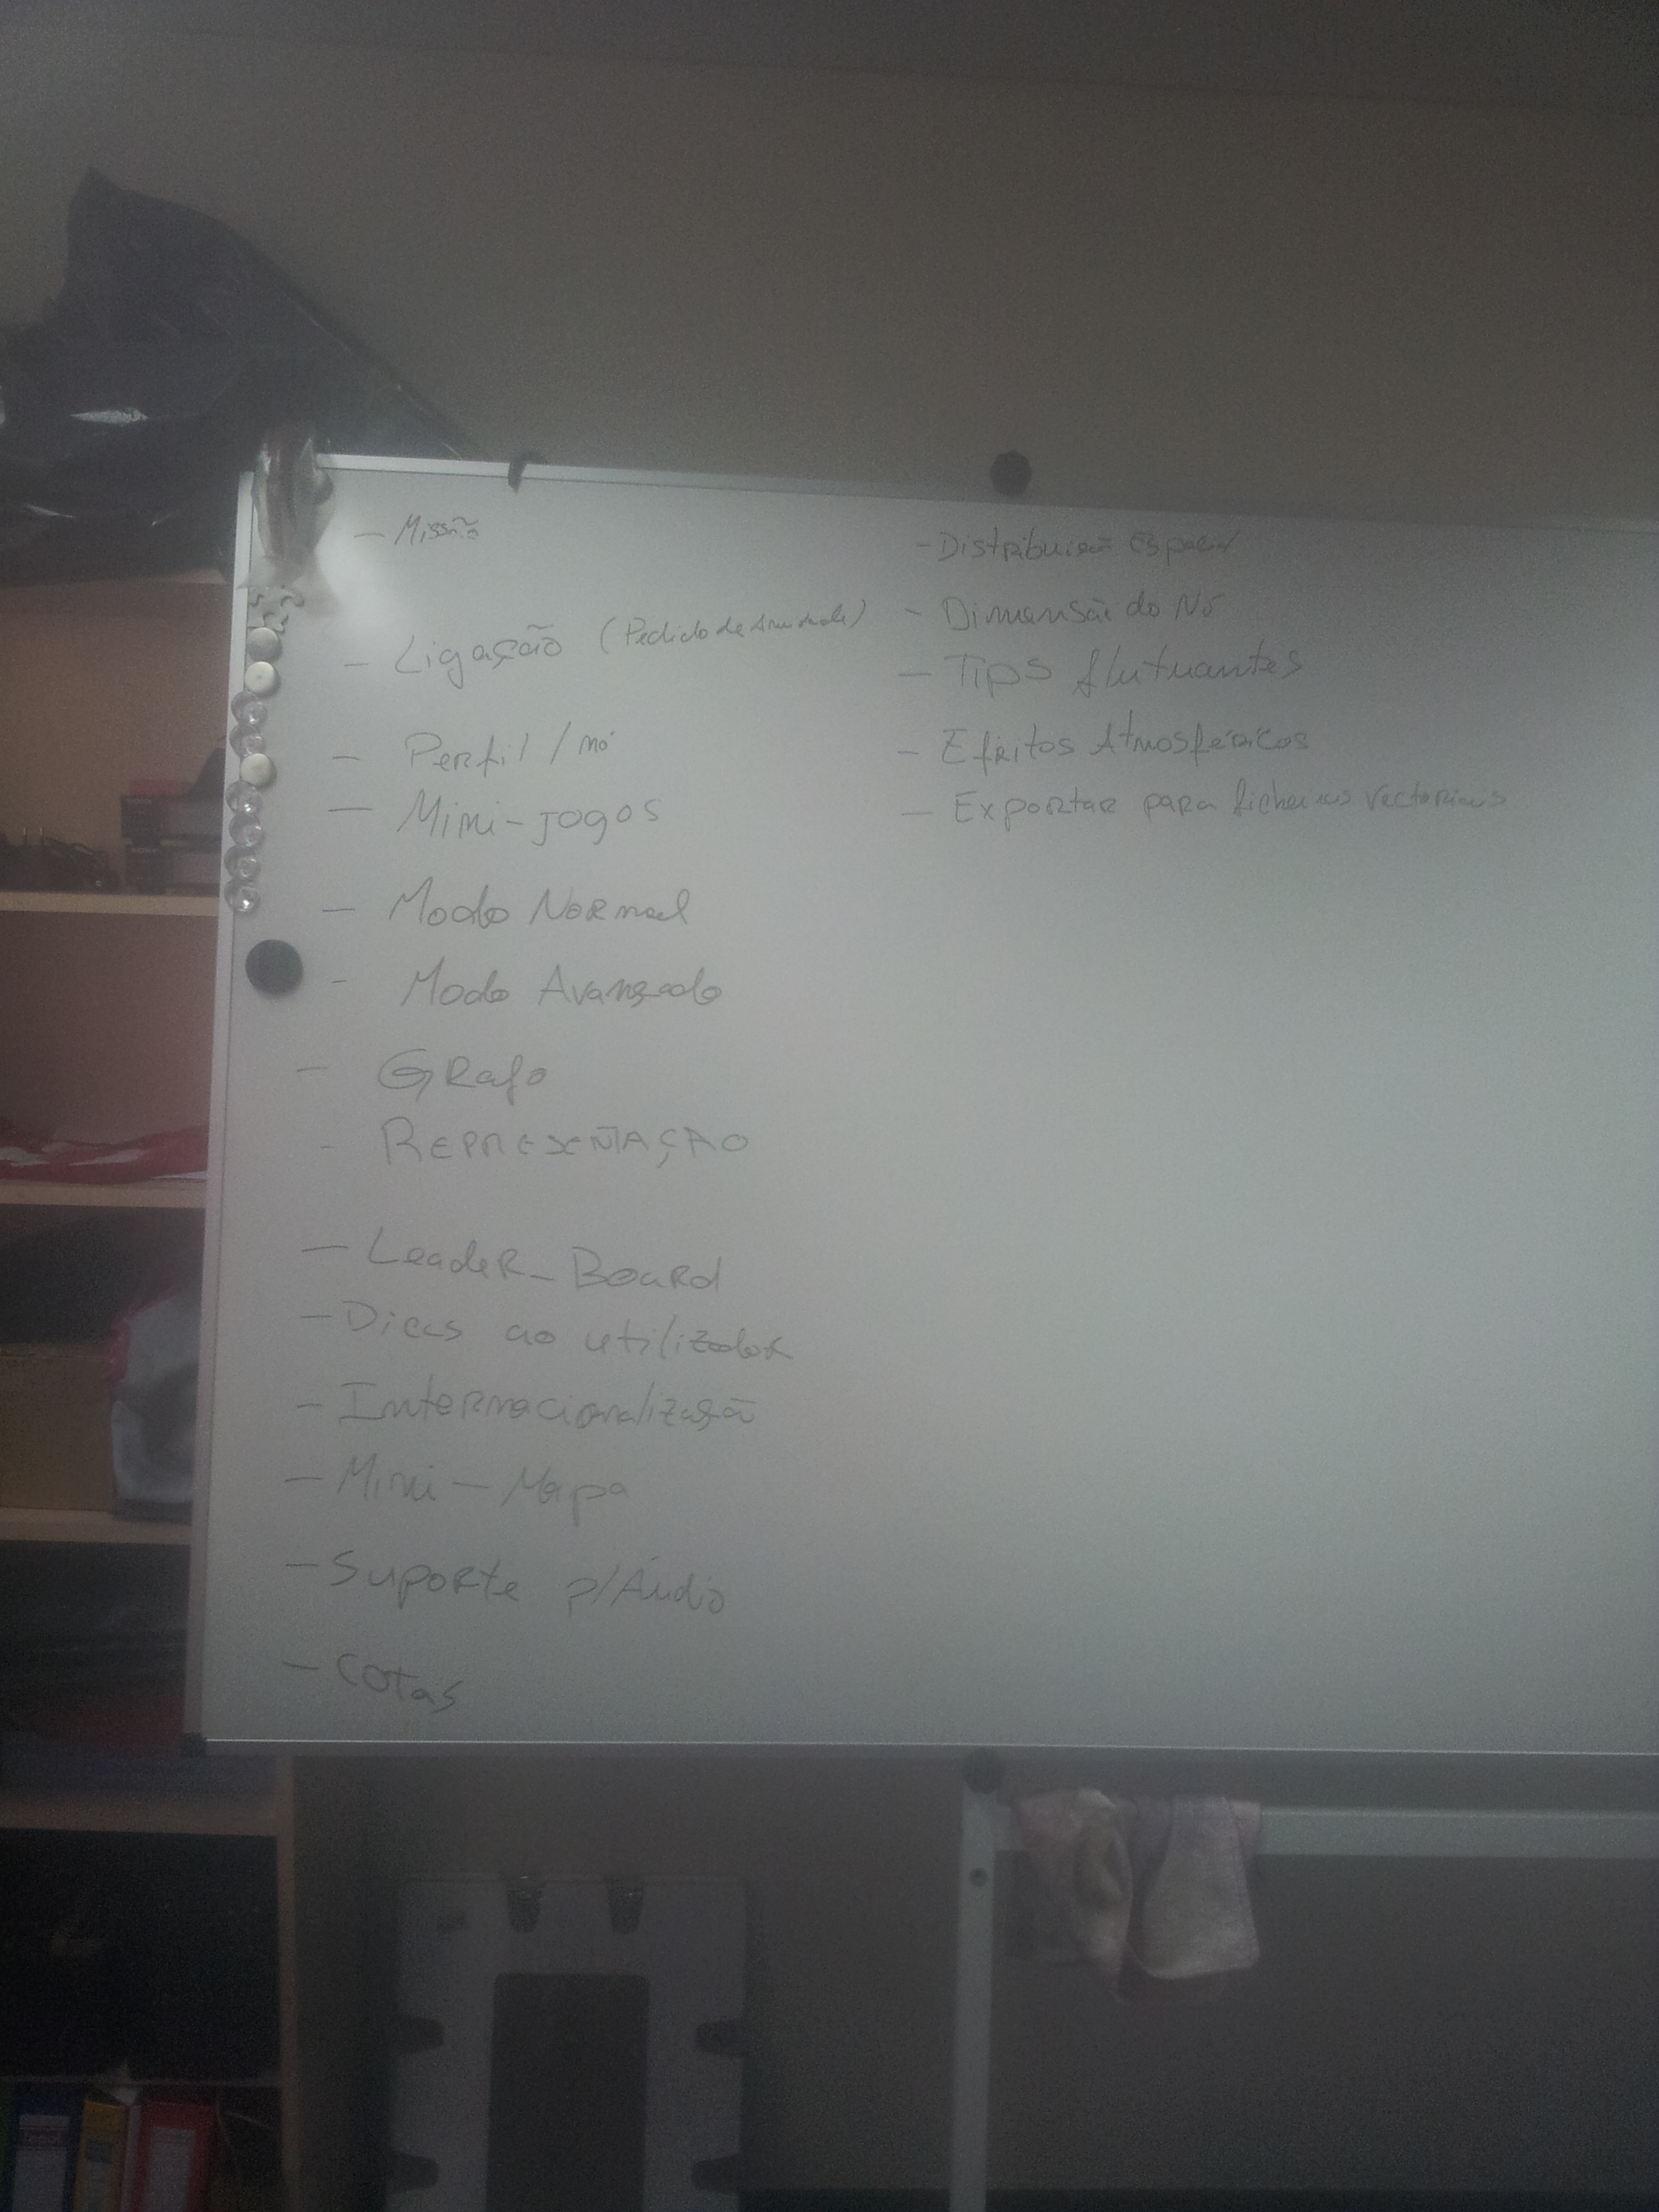 - Missão
- Ligação (Pedido de Amizade)
- Perfil / nó
- Mini-jogos
- Modo Normal
- Modo Avançado
- Grafo
- REPRESENTAÇÃO
- Leader_Board
- Dicas ao utilizador
- Internacionalização
- Mini-Mapa
- Suporte p/Áudio
- cotas
- Distribuição Espacial
- Dimensão do Nó
- Tips flutuantes
- Efeitos Atmosféricos
- Exportar para ficheiros vectoriais